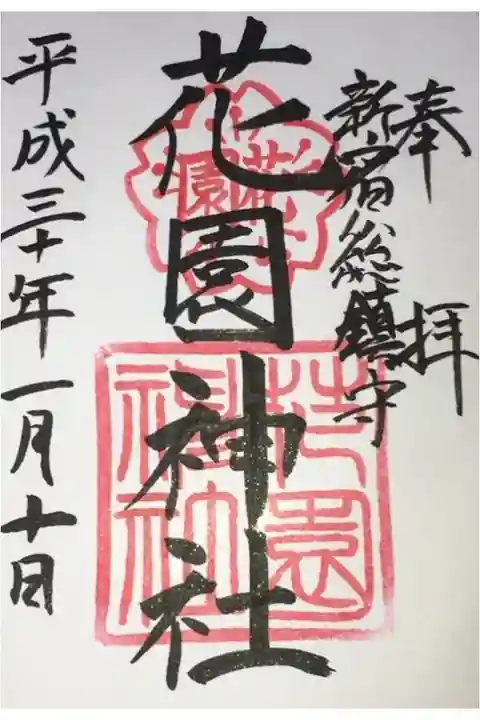 奉拝
新宿総鎮守
花園神社
平成三十年一月十日
花園
花園
神社